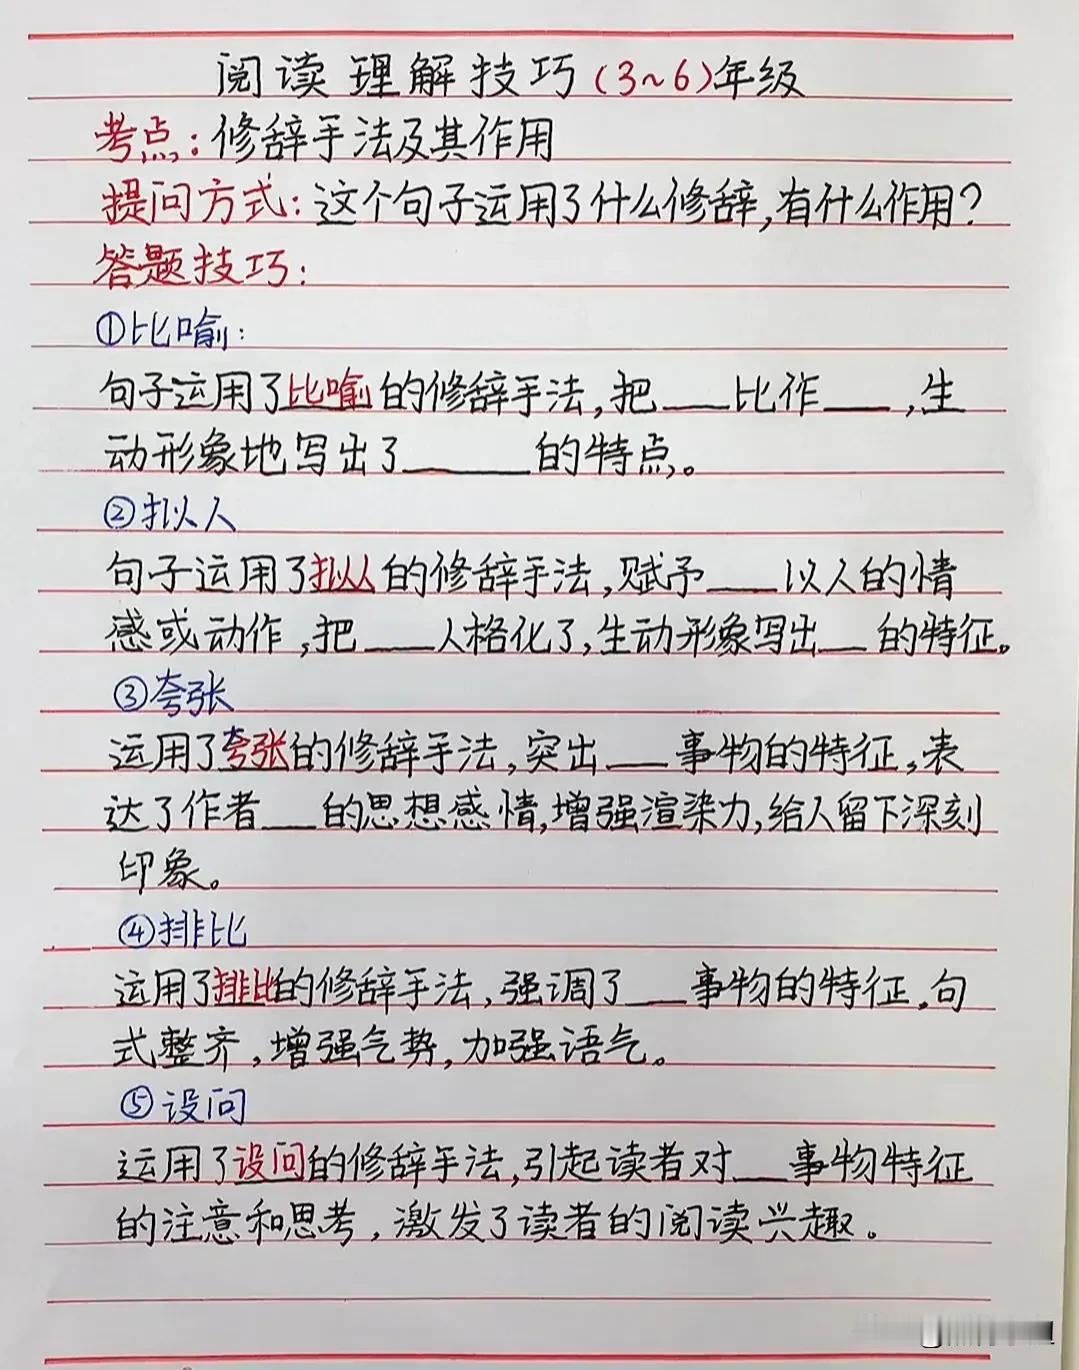 阅读理解技巧(3~6)年级
考点:修辞手法及其作用
提问方式:这个句子运用了什么修辞,有什么作用?
答题技巧:
①比喻:
句子运用了比喻的修辞手法,把____比作____,生
动形象地写出了________的特点。
②拟人
句子运用了拟人的修辞手法,赋予____以人的情
感或动作,把____人格化了,生动形象写出___的特征。
③夸张
运用了夸张的修辞手法,突出____事物的特征,表
达了作者___的思想感情,增强渲染力,给人留下深刻
印象。
④排比
运用了排比的修辞手法,强调了____事物的特征,句
式整齐,增强气势,加强语气。
⑤设问
运用了设问的修辞手法,引起读者对___事物特征
的注意和思考,激发了读者的阅读兴趣。